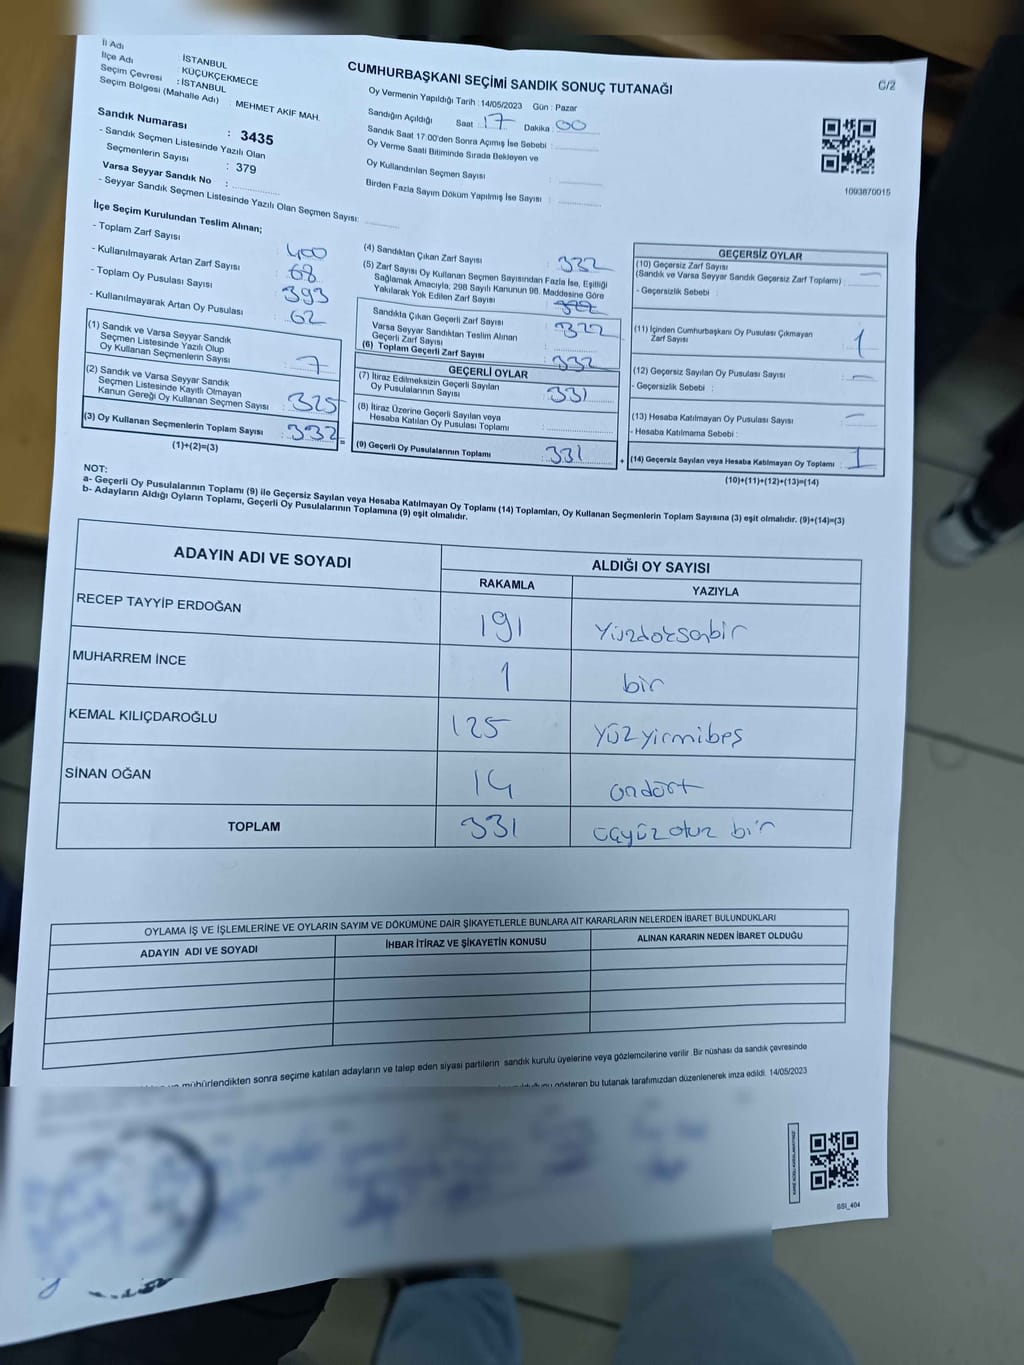 İl Adı : İSTANBUL
İlçe Adı : KÜÇÜKÇEKMECE
Seçim Çevresi : İSTANBUL
Seçim Bölgesi (Mahalle Adı) : MEHMET AKİF MAH.
Sandık Numarası : 3435
- Sandık Seçmen Listesinde Yazılı Olan
Seçmenlerin Sayısı : 379
Varsa Seyyar Sandık No :
- Seyyar Sandık Seçmen Listesinde Yazılı Olan Seçmen Sayısı:
CUMHURBAŞKANI SEÇİMİ SANDIK SONUÇ TUTANAĞI
C/2
Oy Vermenin Yapıldığı Tarih : 14/05/2023 Gün : Pazar
Sandığın Açıldığı Saat : 17 Dakika : 00
Sandık Saat 17.00'den Sonra Açımış İse Sebebi :
Oy Verme Saati Bitiminde Sırada Bekleyen ve
Oy Kullandırılan Seçmen Sayısı :
Birden Fazla Sayım Döküm Yapılmış İse Sayısı :
1093870015
İlçe Seçim Kurulundan Teslim Alınan;
- Toplam Zarf Sayısı : 400
- Kullanılmayarak Artan Zarf Sayısı : 68
- Toplam Oy Pusulası Sayısı : 393
- Kullanılmayarak Artan Oy Pusulası : 62
(1) Sandık ve Varsa Seyyar Sandık
Seçmen Listesinde Yazılı Olup
Oy Kullanan Seçmenlerin Sayısı : 7
(2) Sandık ve Varsa Seyyar Sandık
Seçmen Listesinde Kayıtlı Olmayan
Kanun Gereği Oy Kullanan Seçmen Sayısı : 325
(3) Oy Kullanan Seçmenlerin Toplam Sayısı : 332
(1)+(2)=(3)
(4) Sandıktan Çıkan Zarf Sayısı : 332
(5) Zarf Sayısı Oy Kullanan Seçmen Sayısından Fazla İse, Eşitliği
Sağlamak Amacıyla, 298 Sayılı Kanunun 98. Maddesine Göre
Yakılarak Yok Edilen Zarf Sayısı
Sandıkta Çıkan Geçerli Zarf Sayısı : 322
Varsa Seyyar Sandıktan Teslim Alınan
Geçerli Zarf Sayısı :
(6) Toplam Geçerli Zarf Sayısı : 332
GEÇERLİ OYLAR
(7) İtiraz Edilmeksizin Geçerli Sayılan
Oy Pusulalarının Sayısı : 331
(8) İtiraz Üzerine Geçerli Sayılan veya
Hesaba Katılan Oy Pusulası Toplamı :
(9) Geçerli Oy Pusulalarının Toplamı : 331
GEÇERSİZ OYLAR
(10) Geçersiz Zarf Sayısı
(Sandık ve Varsa Seyyar Sandık Geçersiz Zarf Toplamı) : —
- Geçersizlik Sebebi :
(11) İçinden Cumhurbaşkanı Oy Pusulası Çıkmayan
Zarf Sayısı : 1
(12) Geçersiz Sayılan Oy Pusulası Sayısı : —
- Geçersizlik Sebebi :
(13) Hesaba Katılmayan Oy Pusulası Sayısı : —
- Hesaba Katılmama Sebebi :
(14) Geçersiz Sayılan veya Hesaba Katılmayan Oy Toplamı : 1
(10)+(11)+(12)+(13)=(14)
NOT:
a- Geçerli Oy Pusulalarının Toplamı (9) ile Geçersiz Sayılan veya Hesaba Katılmayan Oy Toplamı (14) Toplamları, Oy Kullanan Seçmenlerin Toplam Sayısına (3) eşit olmalıdır. (9)+(14)=(3)
b- Adayların Aldığı Oyların Toplamı, Geçerli Oy Pusulalarının Toplamına (9) eşit olmalıdır.
ADAYIN ADI VE SOYADI
ALDIĞI OY SAYISI
RAKAMLA YAZIYLA
RECEP TAYYİP ERDOĞAN 191 Yüzdoksanbir
MUHARREM İNCE 1 bir
KEMAL KILIÇDAROĞLU 125 yüzyirmibeş
SİNAN OĞAN 14 ondört
TOPLAM 331 üçyüzotuz bir
OYLAMA İŞ VE İŞLEMLERİNE VE OYLARIN SAYIM VE DÖKÜMÜNE DAİR ŞİKAYETLERLE BUNLARA AİT KARARLARIN NELERDEN İBARET BULUNDUKLARI
ADAYIN ADI VE SOYADI İHBAR İTİRAZ VE ŞİKAYETİN KONUSU ALINAN KARARIN NEDEN İBARET OLDUĞU
mühürlendikten sonra seçime katılan adayların ve talep eden siyasi partilerin sandık kurulu üyelerine veya gözlemcilerine verilir .Bir nüshası da sandık çevresinde
gösteren bu tutanak tarafımızdan düzenlenerek imza edildi. 14/05/2023
SSI_404